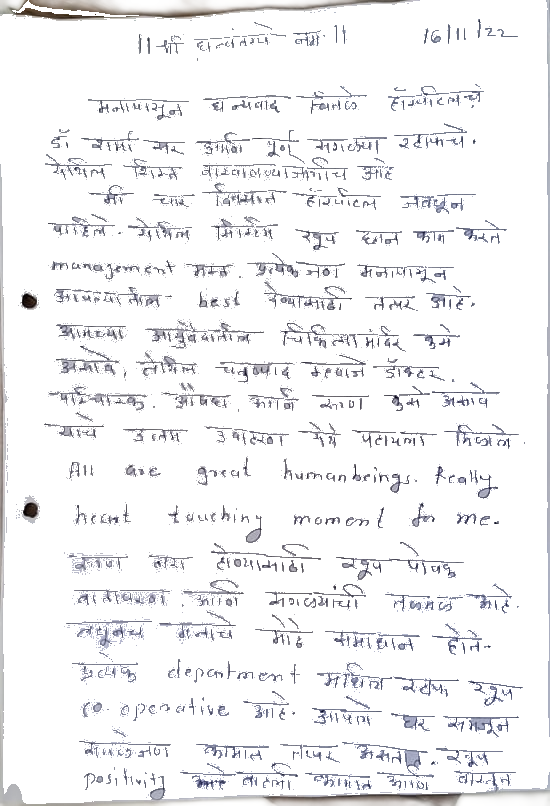 || श्री धन्वंतरये नमः || 16/11/22
मनापासून धन्यवाद हॉस्पिटलचे
डॉ शर्मा सर आणि पूर्ण सगळ्या स्टाफचे.
येथिल शिस्त वाखाणण्याजोगीच आहे
मी चार दिवसात हॉस्पिटल जवळून
पाहिले. येथिल सिस्टिम खूप छान काम करते
management मस्त. प्रत्येकजण मनापासून
आपल्यातील best देण्यासाठी तत्पर आहे.
आमच्या आयुर्वेदातील चिकित्सा मंदिर कसे
असावे, तेथिल चतुष्पाद म्हणजे डॉक्टर,
परिचारक, औषध, आणि रुग्ण कसे असावे
याचे उत्तम उदाहरण येथे पहायला मिळाले.
All are great humanbeings. Really
heart touching moment for me.
रुग्ण बरा होण्यासाठी खूप पोषक
वातावरण, आणि सगळ्यांची तळमळ आहे.
मनाचे मोठे समाधान होते.
प्रत्येक department मधिल स्टाफ खूप
co-operative आहे. आपले घर समजून
कामात तत्पर असतात. खूप
positivity आहे वाटली कामात आणि